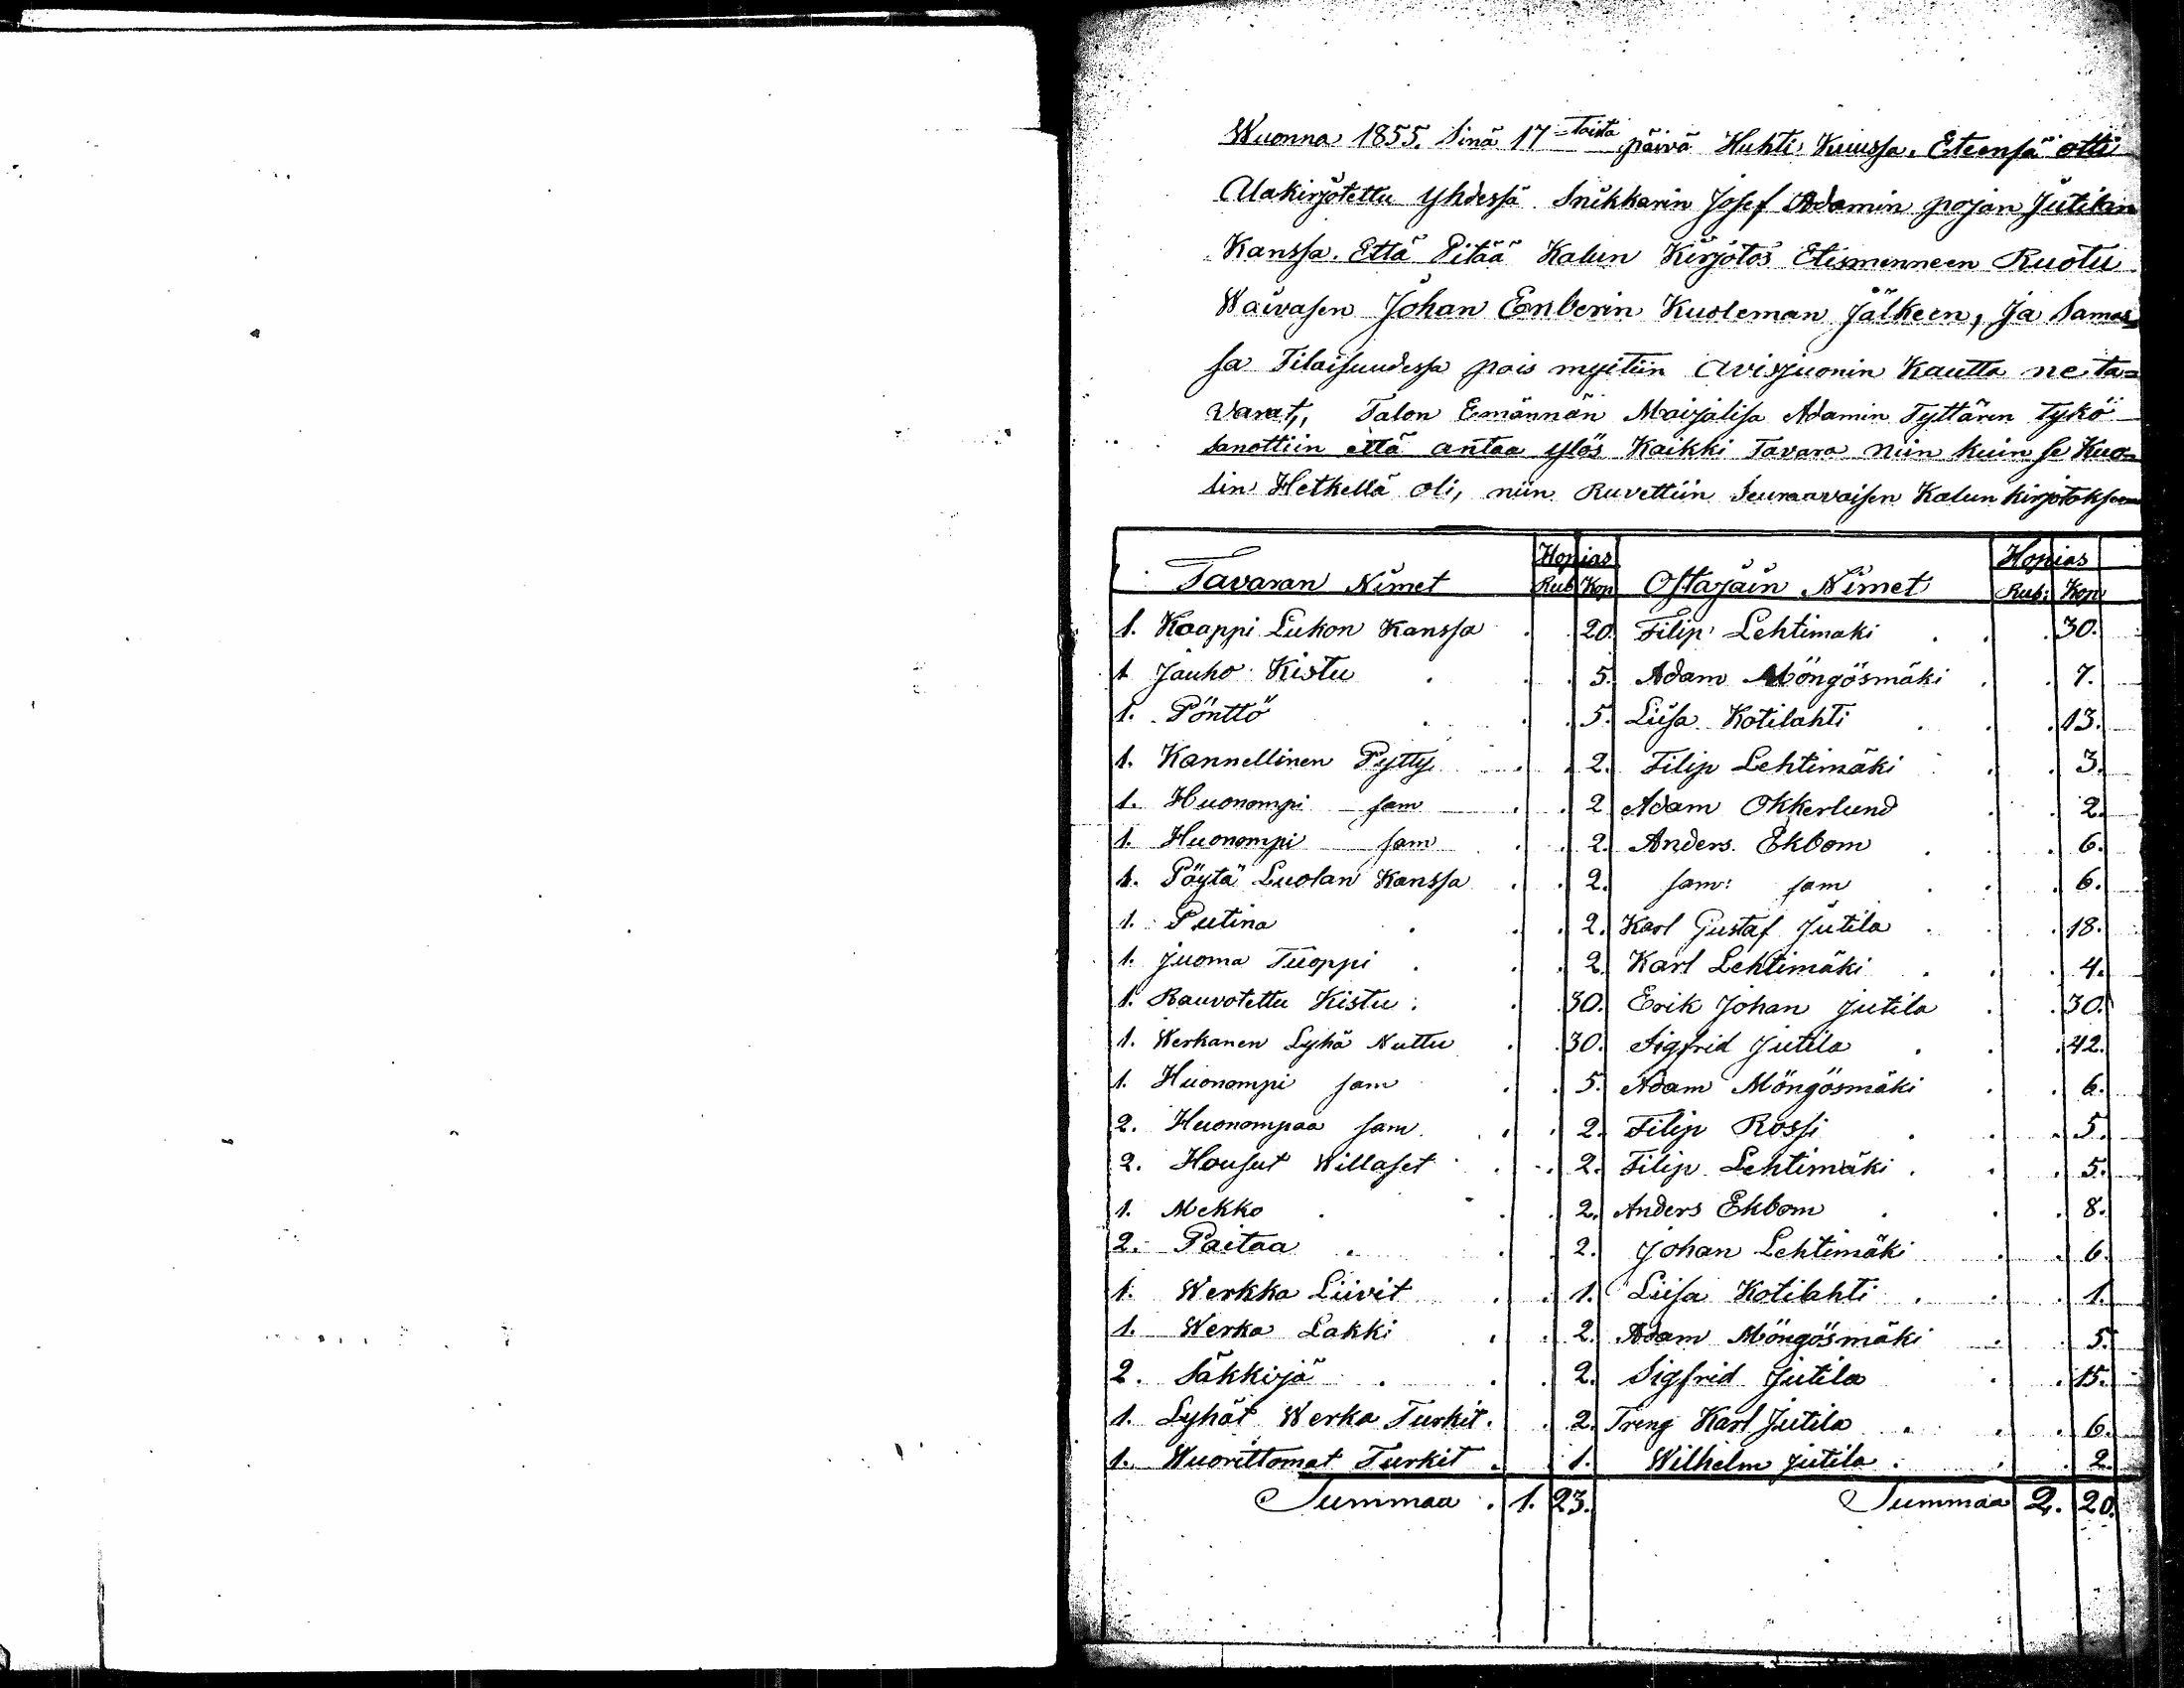 Wuonna 1855. Sinä 17=Toista päivä Huhti Kuussa. Eteensä otti
Alakirjotettu yhdessä Snikkarin Josef Adamin pojan Jutilan
Kanssa. Että Pitää Kalun Kirjotos Edesmenneen Ruotu
Waivasen Johan Enberin Kuoleman Jälkeen, Ja Samas=
sa Tilaisuudessa pois myitiin Avisjuonin Kautta ne ta=
varat,, Talon Emännän Maijalisa Adamin Tyttären Tykö
sanottiin että antaa ylös Kaikki Tavara niin kuin se Kuo=
lin Hetkellä oli, niin Ruvettiin Seuraavaisen Kalun kirjotoksen
Tavaran Nimet Hopias Rub Kop Ostajain Nimet Hopias Rub: Kop:
1. Kaappi Lukon Kanssa . . 20. Filip Lehtimaki . . . 30.
1 Jauho Kistu . . . 5. Adam Möngösmäki . . 7.
1. Pönttö . . . 5. Liisa Kotilahti . . . 13.
1. Kannellinen Pytty . . 2. Filip Lehtimäki . . 3.
1. Huonompi sam . . 2 Adam Okkerlund . . 2.
1. Huonompi sam . . 2. Anders Ekbom . . . 6.
1. Pöytä Luolan Kanssa . . 2. sam: sam . . . 6.
1. Putina . . . 2. Karl Gustaf Jutila . . . 18.
1. juoma Tuoppi . . . 2. Karl Lehtimäki . . . 4.
1. Rauvotettu Kistu . . . 30. Erik Johan Jutila . . 30.
1. Werkanen Lyhä Nuttu . . 30. Sigfrid Jutila . . . 42.
1. Huonompi sam . . 5. Adam Möngösmäki . . 6.
2. Huonompaa sam . . . 2. Filip Rossi . . . 5.
2. Housut Willaset . . 2. Filip Lehtimäki . . . 5.
1. Mekko . . . 2. Anders Ekbom . . . 8.
2. Paitaa . . . 2. Johan Lehtimäki . . 6.
1. Werkka Liivit . . 1. Liisa Kotilahti . . . 1.
1. Werka Lakki . . 2. Adam Möngösmäki . 5.
2. Säkkijä . . . 2. Sigfrid Jutila . . 15.
1. Lyhät Werka Turkit . . 2. Treng Karl Jutila . . . 6.
1. Wuorittomat Turkit . . 1. Wilhelm Jutila . . . 2.
Summaa . 1. 23. Summaa 2. 20.